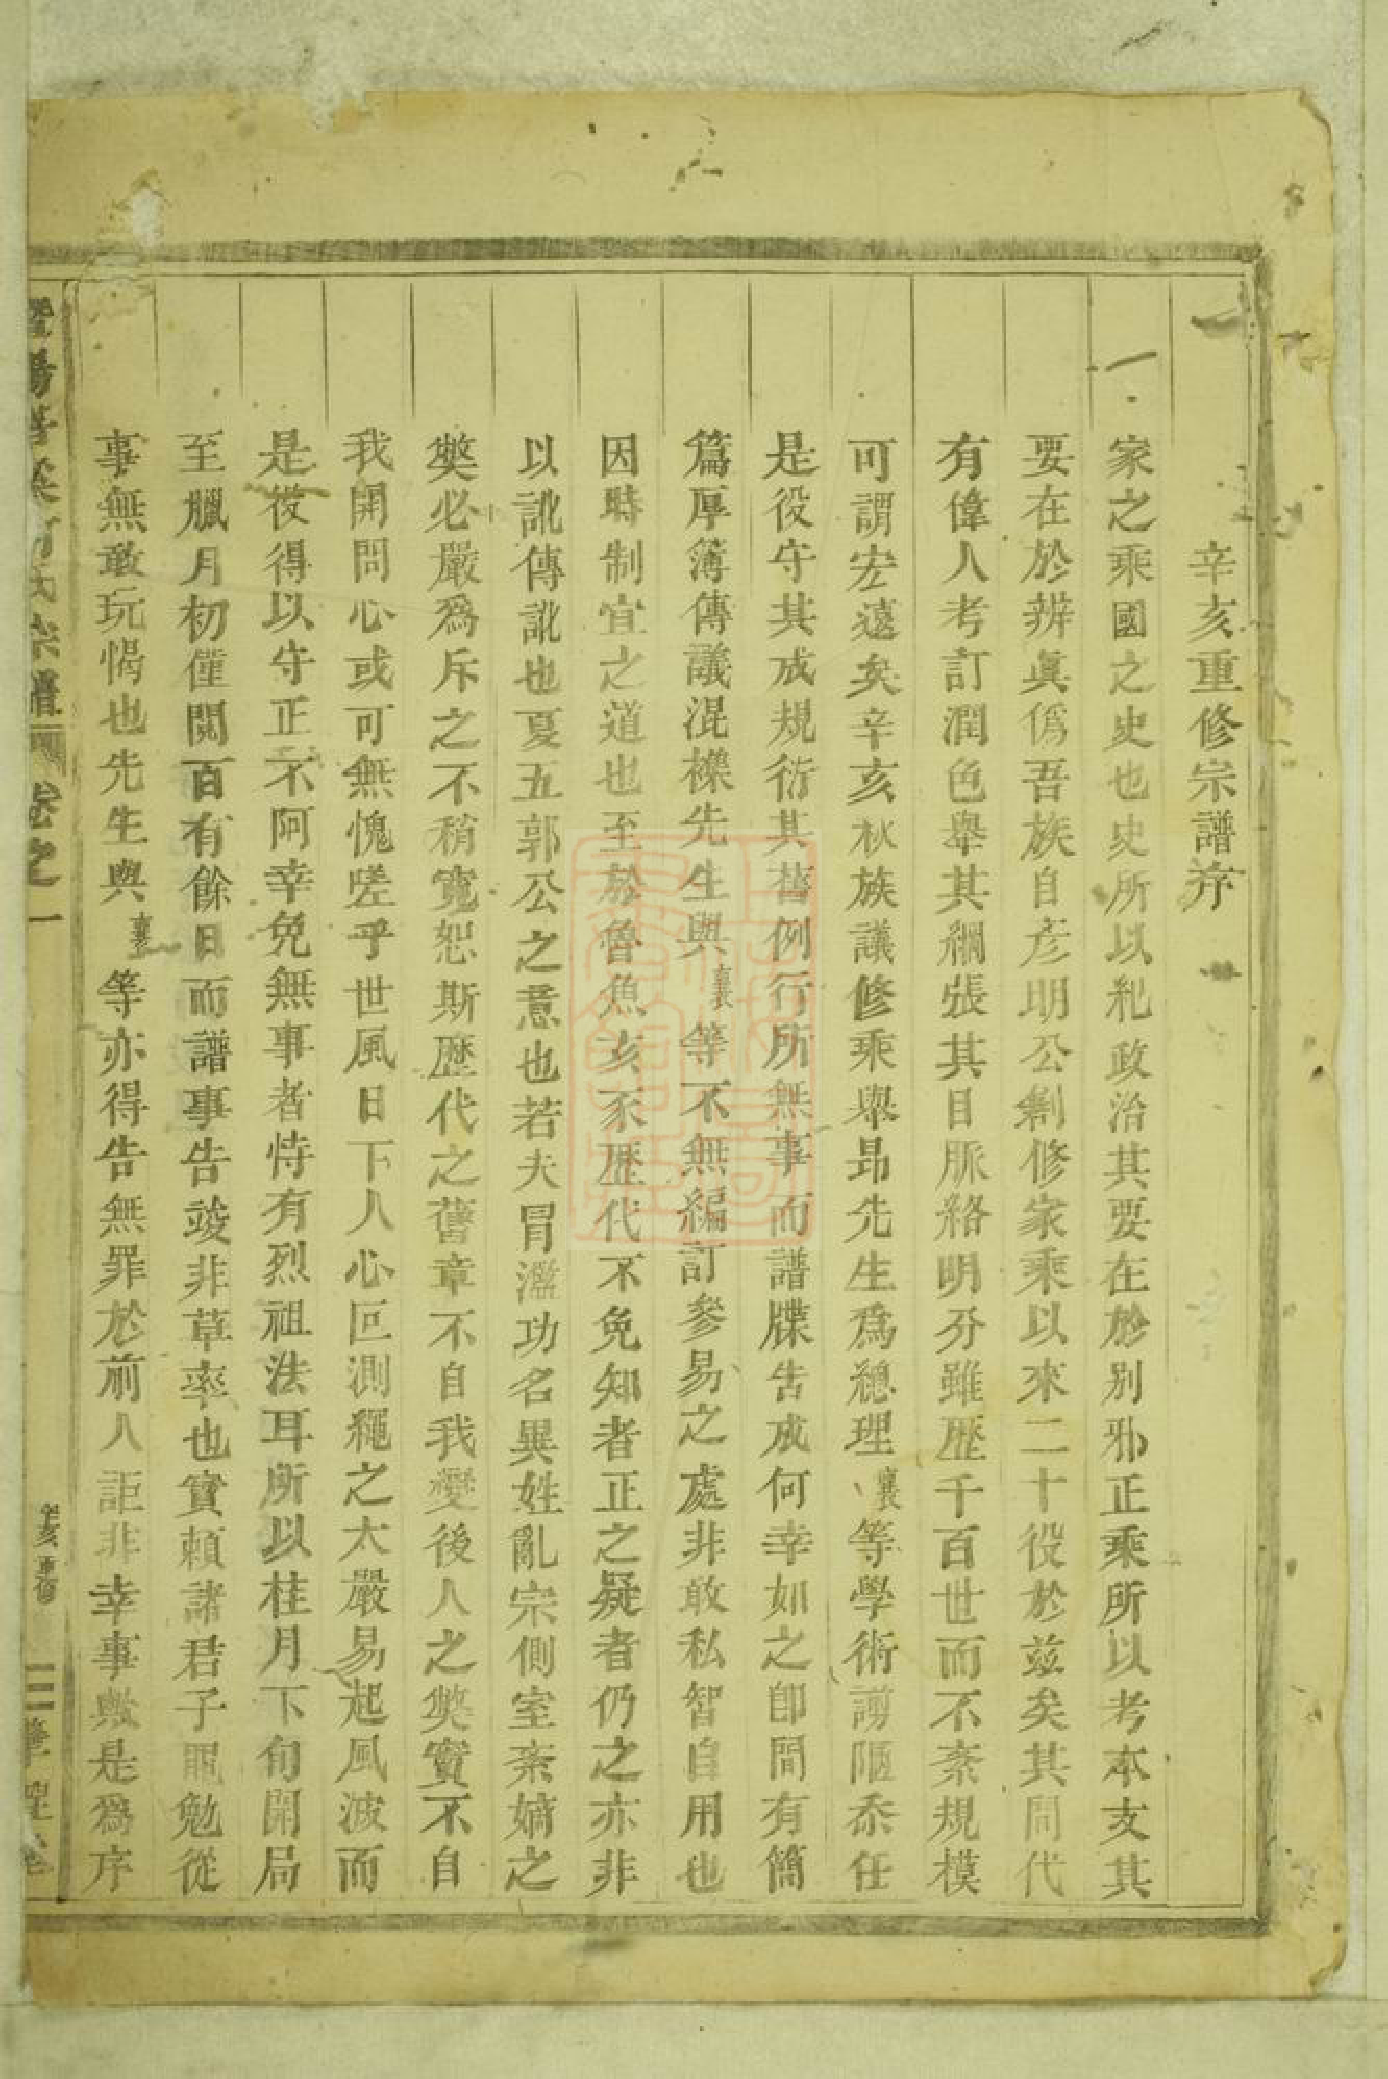 辛亥重修宗譜序
家之乘國之史也史所以紀政治其要在於別邪正乘所以考本支其
要在於辨眞僞吾族自彥明公創修家乘以來二十役於兹矣其間代
有偉人考訂潤色舉其綱張其目脈絡明分雖歷千百世而不紊規模
可謂宏遠矣辛亥秋族議修乘舉昂先生爲總理襄等學術謭陋忝任
是役守其成規衍其舊例行所無事而譜牒告成何幸如之卽間有簡
篇厚簿傳議混櫟先生與襄等不無編訂參易之處非敢私智自用也
因時制宜之道也至於魯魚亥豕歷代不免知者正之疑者仍之亦非
以訛傳訛也夏五郭公之意也若夫冒濫功名異姓亂宗側室紊嫡之
獘必嚴爲斥之不稍寬恕斯歷代之舊章不自我變後人之獘實不自
我開問心或可無愧嗟乎世風日下人心叵測繩之太嚴易起風波而
是役得以守正不阿幸免無事者恃有烈祖法耳所以桂月下旬開局
至臘月初僅閱百有餘日而譜事告竣非草率也實賴諸君子黽勉從
事無敢玩愒也先生與襄等亦得告無罪於前人詎非幸事歟是爲序
宗譜 卷之一
辛亥重修